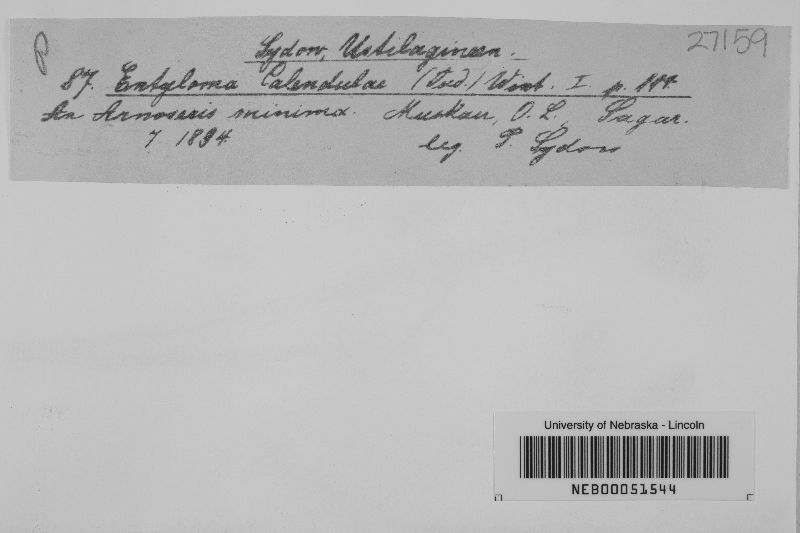 P
27159
Sydow, Ustilagineen.
87. Entyloma Calendulae (Oud.) Wint. I. p. 114.
An Arnoseris minima. Muskau, O. L., Sagar.
7 1894.
leg. P. Sydow
University of Nebraska - Lincoln
NEB00051544